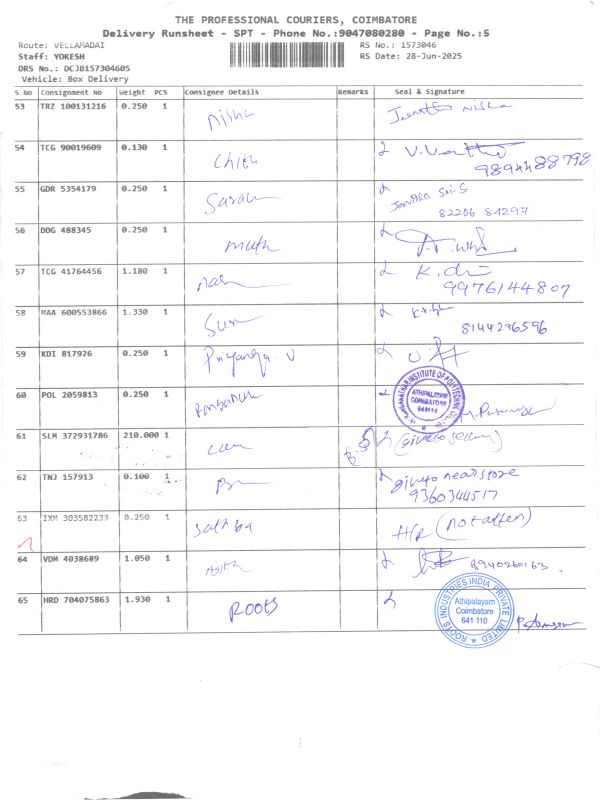 THE PROFESSIONAL COURIERS, COIMBATORE
Delivery Runsheet - SPT - Phone No.:9047080280 - Page No.:5
Route: VELLAMADAI RS No.: 1573046
Staff: YOKESH RS Date: 28-Jun-2025
DRS No.: DCJB157304605
Vehicle: Box Delivery
S No Consignment No Weight PCS Consignee Details Remarks Seal & Signature
53 TRZ 100131216 0.250 1 Nisha Nisha
54 TCG 90019609 0.130 1
9894488798
55 GDR 5354179 0.250 1 Saran
82206 81297
56 DDG 488345 0.250 1 Muth
57 TCG 41764456 1.180 1
9976144807
58 MAA 600553866 1.330 1
8144236596
59 KDI 817926 0.250 1 Priyanga. V
60 POL 2059813 0.250 1
INSTITUTE OF POLYTECHNIC
ATHIPALAYAM
COIMBATORE
641110
61 SLM 372931786 210.000 1
62 TNJ 157913 0.100 1 giveto near store
9360344517
63 IXM 303582233 0.250 1 H/R
64 VDM 4038689 1.050 1 8940260163
65 HRD 704075863 1.930 1 ROOTS
ROOTS INDUSTRIES INDIA PRIVATE LIMITED
Athipalayam
Coimbatore
641 110